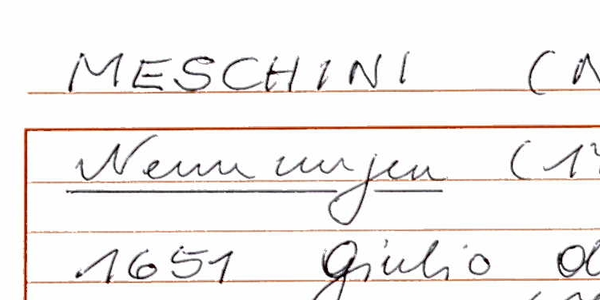 MESCHINI (
Nennungen (1
1651 Giulio